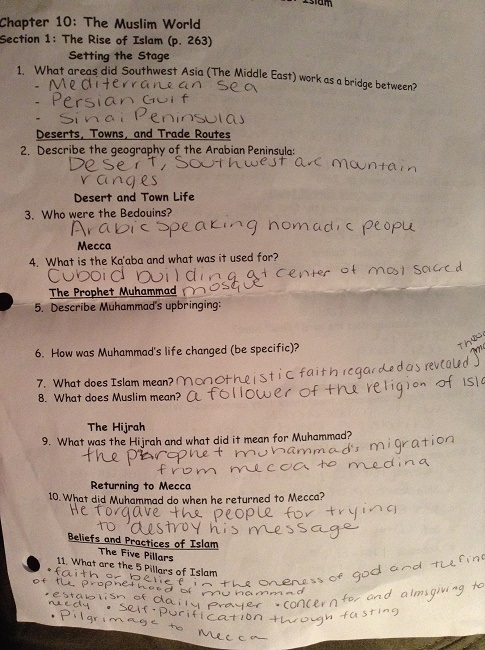 Islam
Chapter 10: The Muslim World
Section 1: The Rise of Islam (p. 263)
Setting the Stage
1. What areas did Southwest Asia (The Middle East) work as a bridge between?
- Mediterranean Sea
- Persian Gulf
- Sinai Peninsulas
Deserts, Towns, and Trade Routes
2. Describe the geography of the Arabian Peninsula:
Desert, Southwest are mountain
ranges
Desert and Town Life
3. Who were the Bedouins?
Arabic speaking nomadic people
Mecca
4. What is the Ka'aba and what was it used for?
Cuboid building at center of most sacred
mosque
The Prophet Muhammad
5. Describe Muhammad's upbringing:
6. How was Muhammad's life changed (be specific)?
7. What does Islam mean? monotheistic faith regarded as revealed
8. What does Muslim mean? a follower of the religion of Isla
The Hijrah
9. What was the Hijrah and what did it mean for Muhammad?
the prophet muhammad's migration
from mecca to medina
Returning to Mecca
10. What did Muhammad do when he returned to Mecca?
He forgave the people for trying
to destroy his message
Beliefs and Practices of Islam
The Five Pillars
11. What are the 5 Pillars of Islam
• faith or belief in the oneness of god and the fin
of the prophethood of muhammad
• establish of daily prayer • concern for and almsgiving to
needy • self-purification through fasting
• Pilgrimage to Mecca